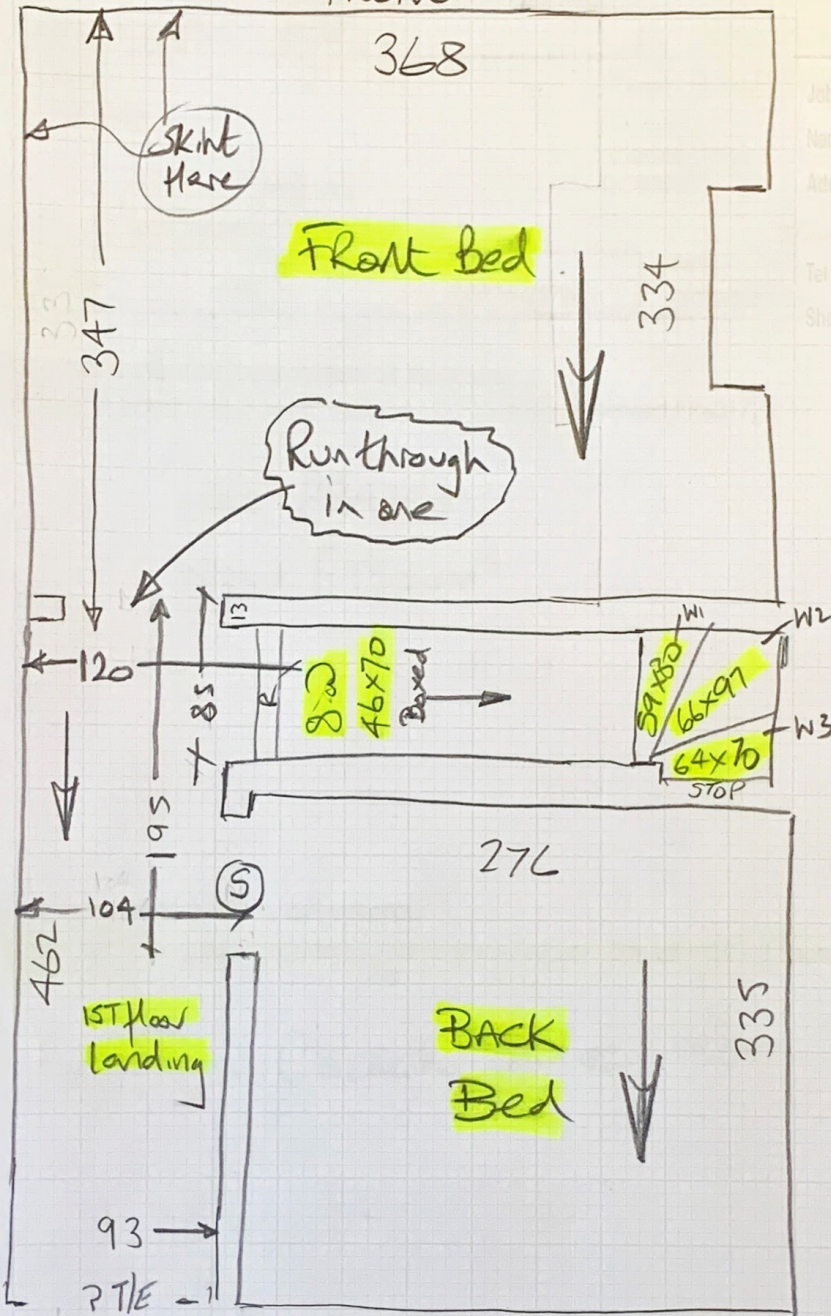 368
Skint
Here
Front Bed
334
347
Run through
in one
13
W1
W2
120
85
R
46x70
Boxed
59x80
66x97
W3
64x70
STOP
195
276
S
104
462
1ST floor
Landing
BACK
Bed
335
93